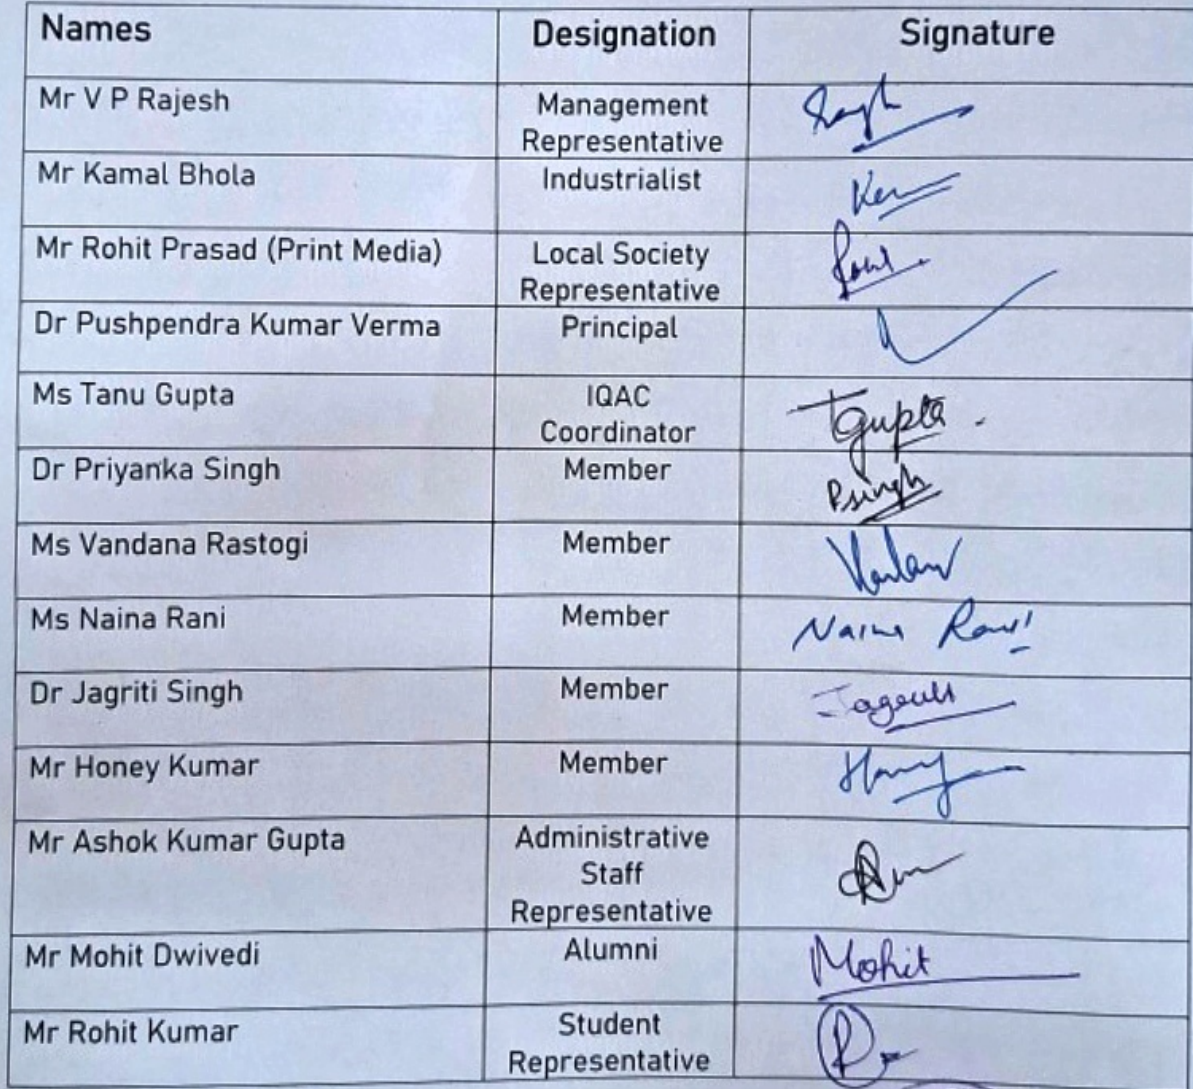 Names Designation Signature
Mr V P Rajesh Management
Representative
Mr Kamal Bhola Industrialist
Mr Rohit Prasad (Print Media) Local Society
Representative
Dr Pushpendra Kumar Verma Principal
Ms Tanu Gupta IQAC
Coordinator TGupta .
Dr Priyanka Singh Member PSingh
Ms Vandana Rastogi Member
Ms Naina Rani Member Naina Rani
Dr Jagriti Singh Member
Mr Honey Kumar Member
Mr Ashok Kumar Gupta Administrative
Staff
Representative
Mr Mohit Dwivedi Alumni Mohit
Mr Rohit Kumar Student
Representative